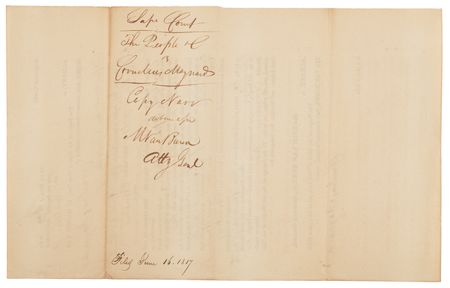 Supe Court
The People &C
vs
Cornelius Maynard
Copy Narr
M Van Buren
Atty Genl
Filed June 16. 1817